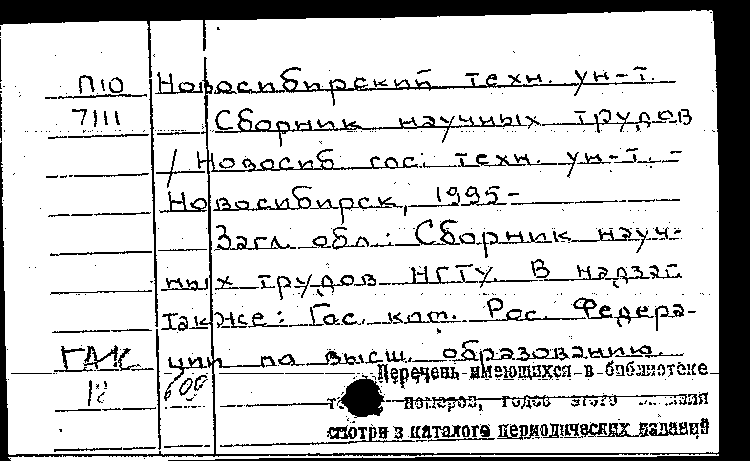 П10 Новосибирский техн. ун-т.
7111 Сборник научных трудов
/ Новосиб гос. техн. ун-т. -
Новосибирск, 1995-
Загл. обл.: Сборник науч-
ных трудов НГТУ. В надзаг.
также: Гос. ком. Рос. Федера-
ГАК ции по высш. образованию.
Перечень имеющихся в библиотеке
12 609
номеров, годов этого
смотри в каталоге периодических изданий